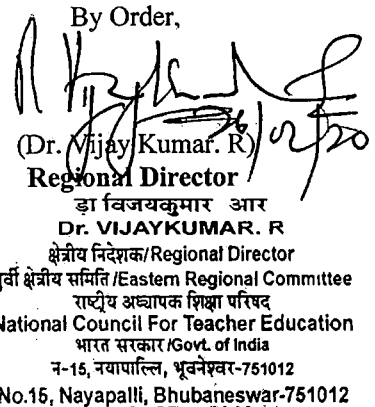 By Order,
26/02/20
(Dr. Vijay Kumar. R)
Regional Director
डा विजयकुमार आर
Dr. VIJAYKUMAR. R
क्षेत्रीय निदेशक/Regional Director
पूर्वी क्षेत्रीय समिति /Eastern Regional Committee
राष्ट्रीय अध्यापक शिक्षा परिषद
National Council For Teacher Education
भारत सरकार /Govt. of India
न-15, नयापाल्लि, भूवनेश्वर-751012
No.15, Nayapalli, Bhubaneswar-751012